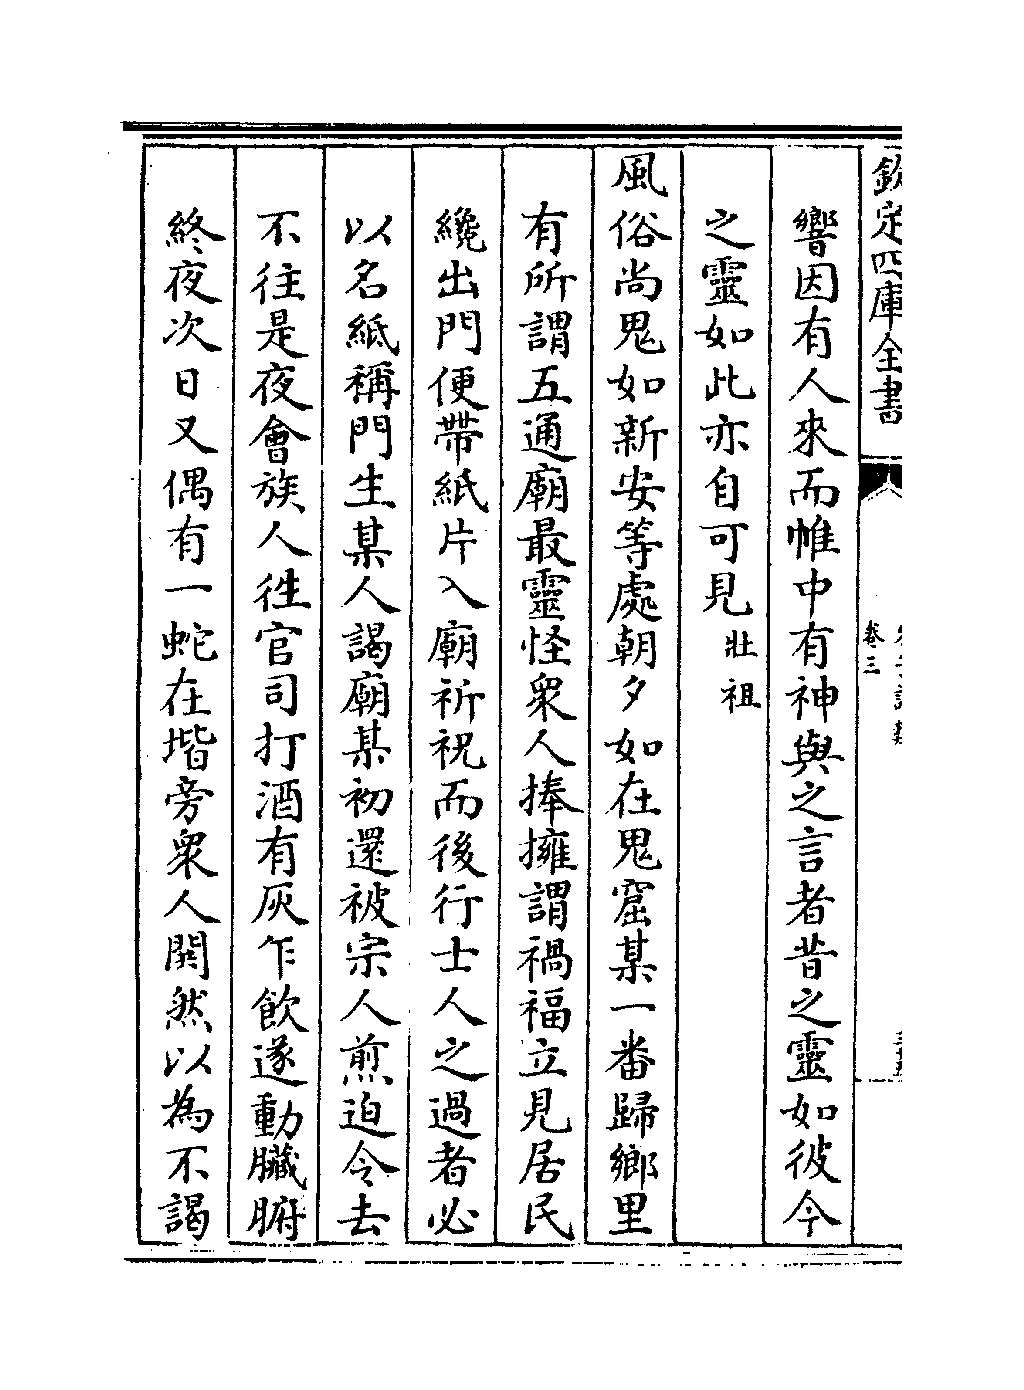 欽定四庫全書
卷三
響因有人來而帷中有神與之言者昔之靈如彼今
之靈如此亦自可見壯祖
風俗尚鬼如新安等處朝夕如在鬼窟某一番歸鄉里
有所謂五通廟最靈怪衆人捧擁謂禍福立見居民
纔出門便帶紙片入廟祈祝而後行士人之過者必
以名紙稱門生某人謁廟某初還被宗人煎迫令去
不往是夜會族人徃官司打酒有灰乍飲遂動臟腑
終夜次日又偶有一蛇在堦旁衆人鬨然以為不謁